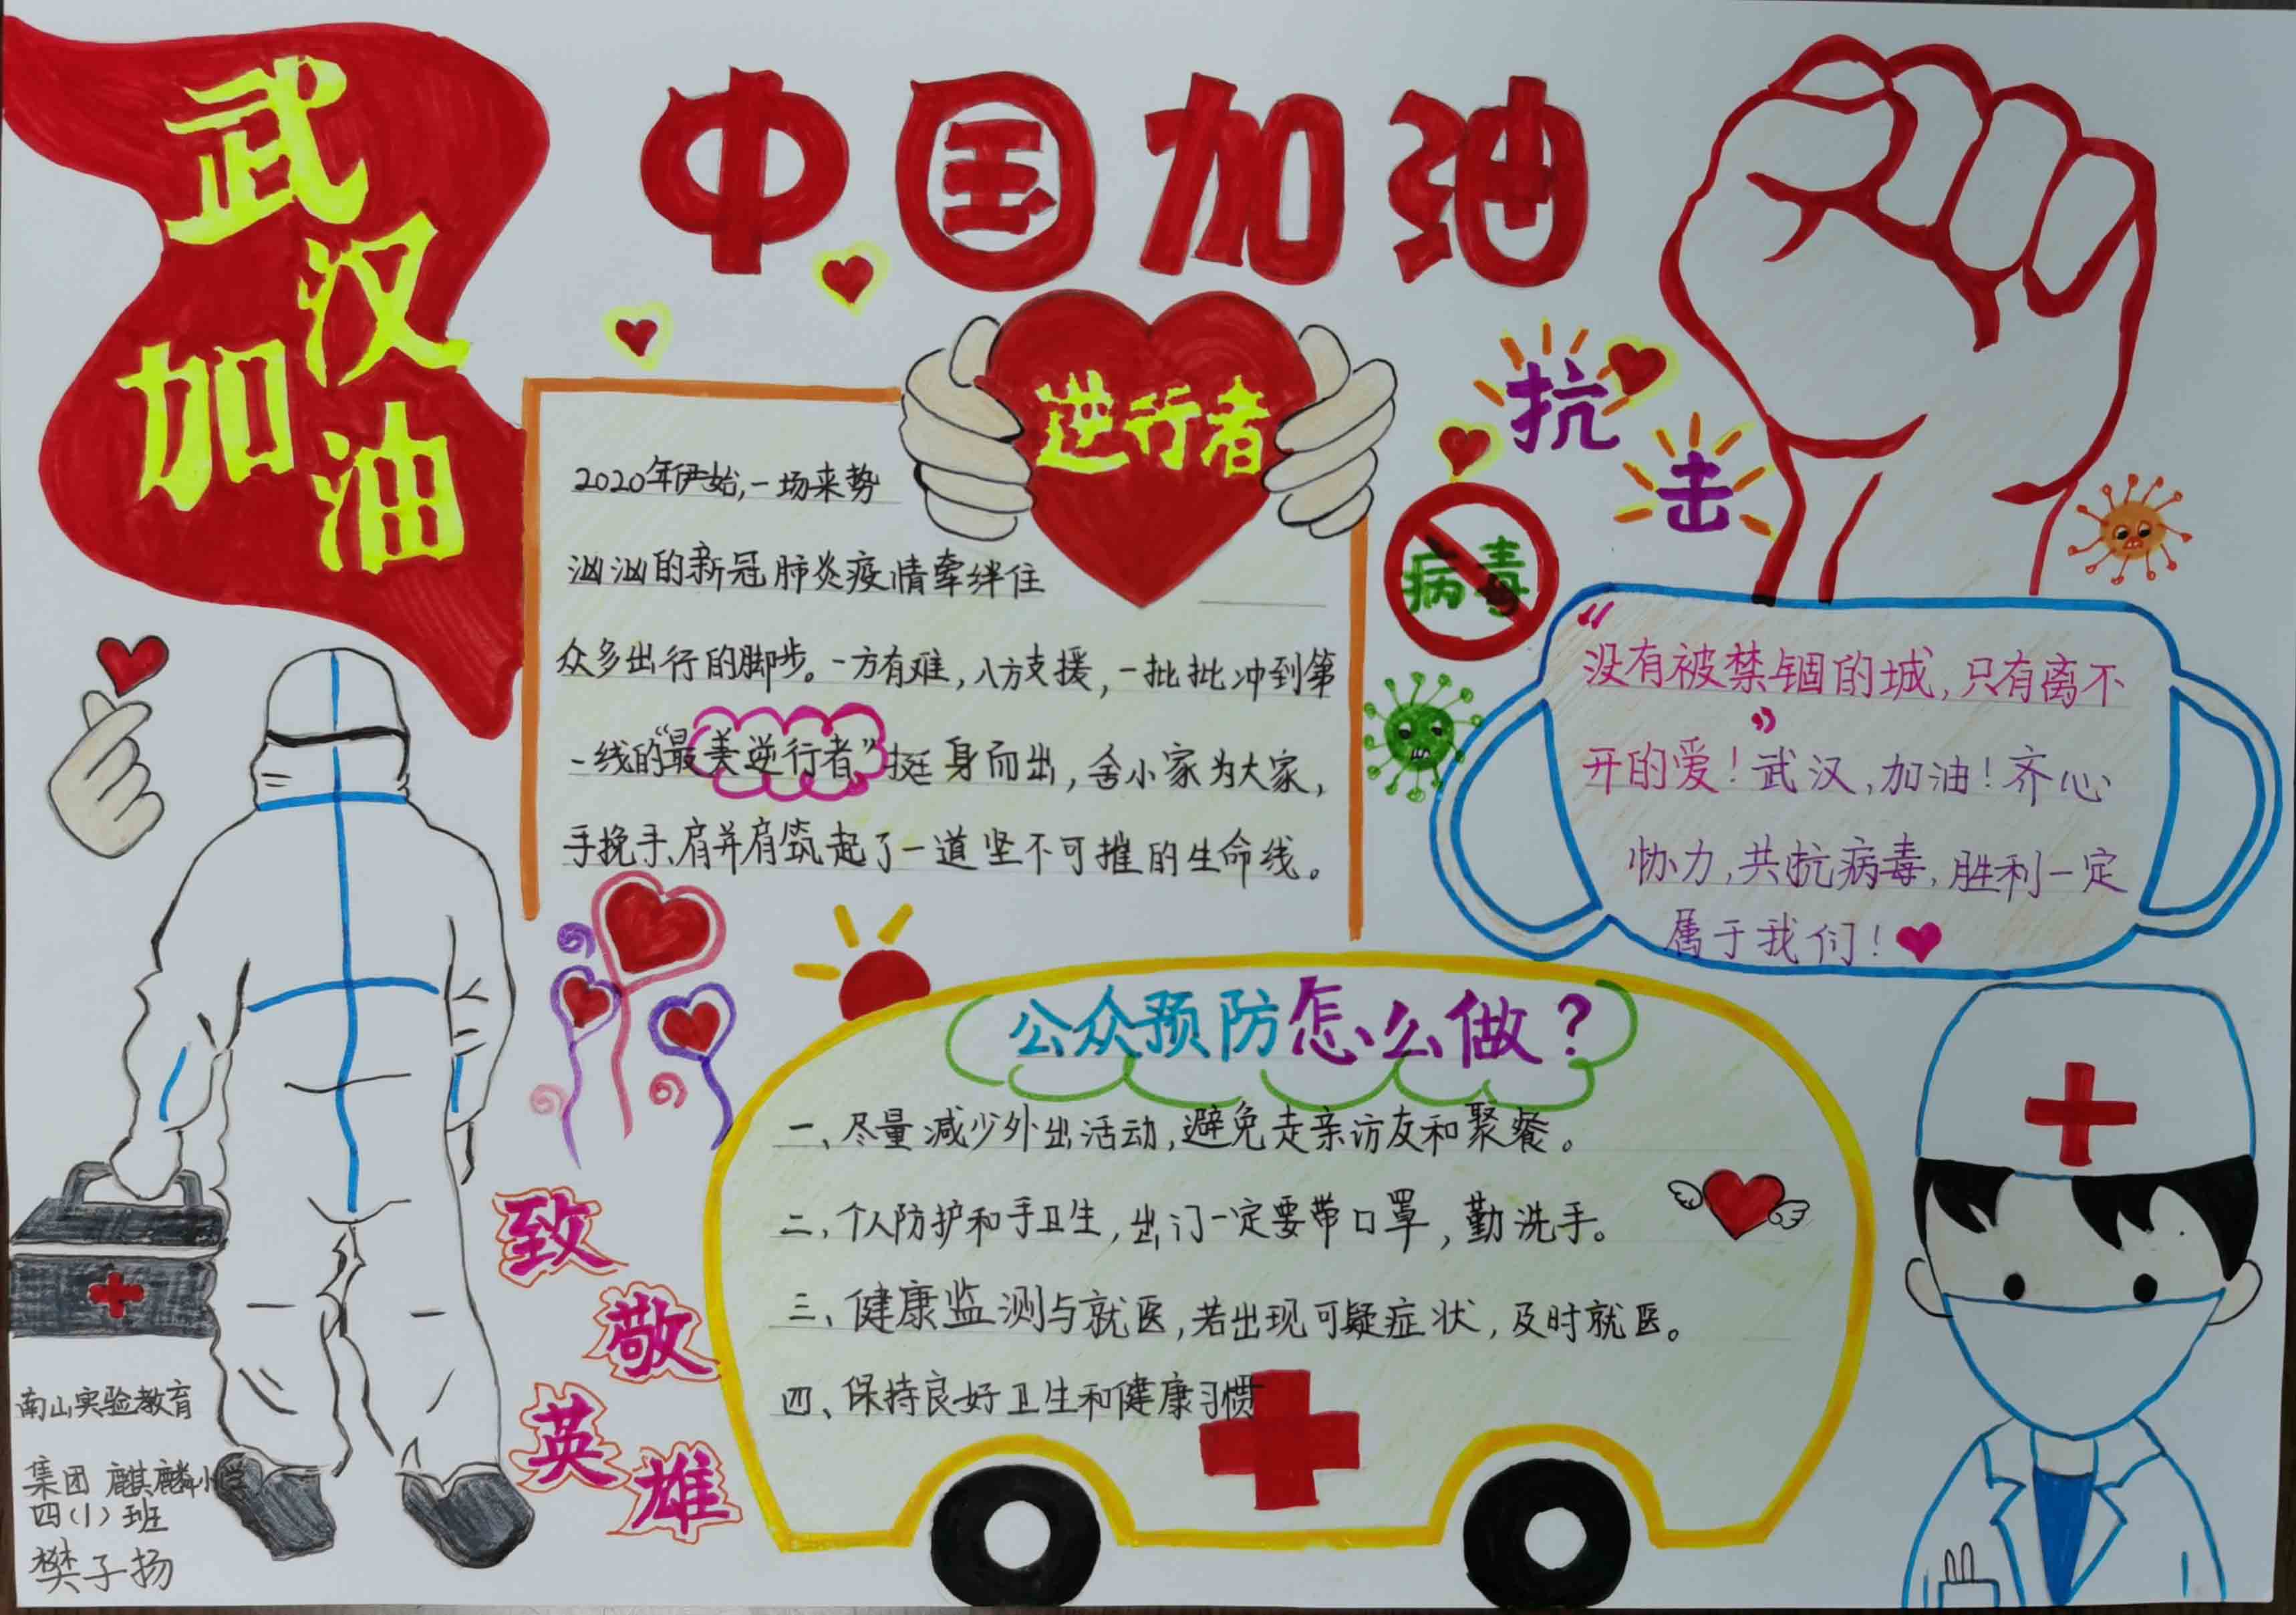 武汉
加油
中国加油
逆行者
2020年伊始，一场来势
汹汹的新冠肺炎疫情牵绊住
众多出行的脚步。一方有难，八方支援，一批批冲到第
一线的“最美逆行者”挺身而出，舍小家为大家，
手挽手、肩并肩筑起了一道坚不可摧的生命线。
抗
击
病毒
“没有被禁锢的城，只有离不
开的爱！”武汉，加油！齐心
协力，共抗病毒，胜利一定
属于我们！
公众预防怎么做？
一、尽量减少外出活动，避免走亲访友和聚餐。
二、个人防护和手卫生，出门一定要带口罩，勤洗手。
三、健康监测与就医，若出现可疑症状，及时就医。
四、保持良好卫生和健康习惯
致
敬
英
雄
南山实验教育
集团 麒麟小学
四(1)班
樊子扬